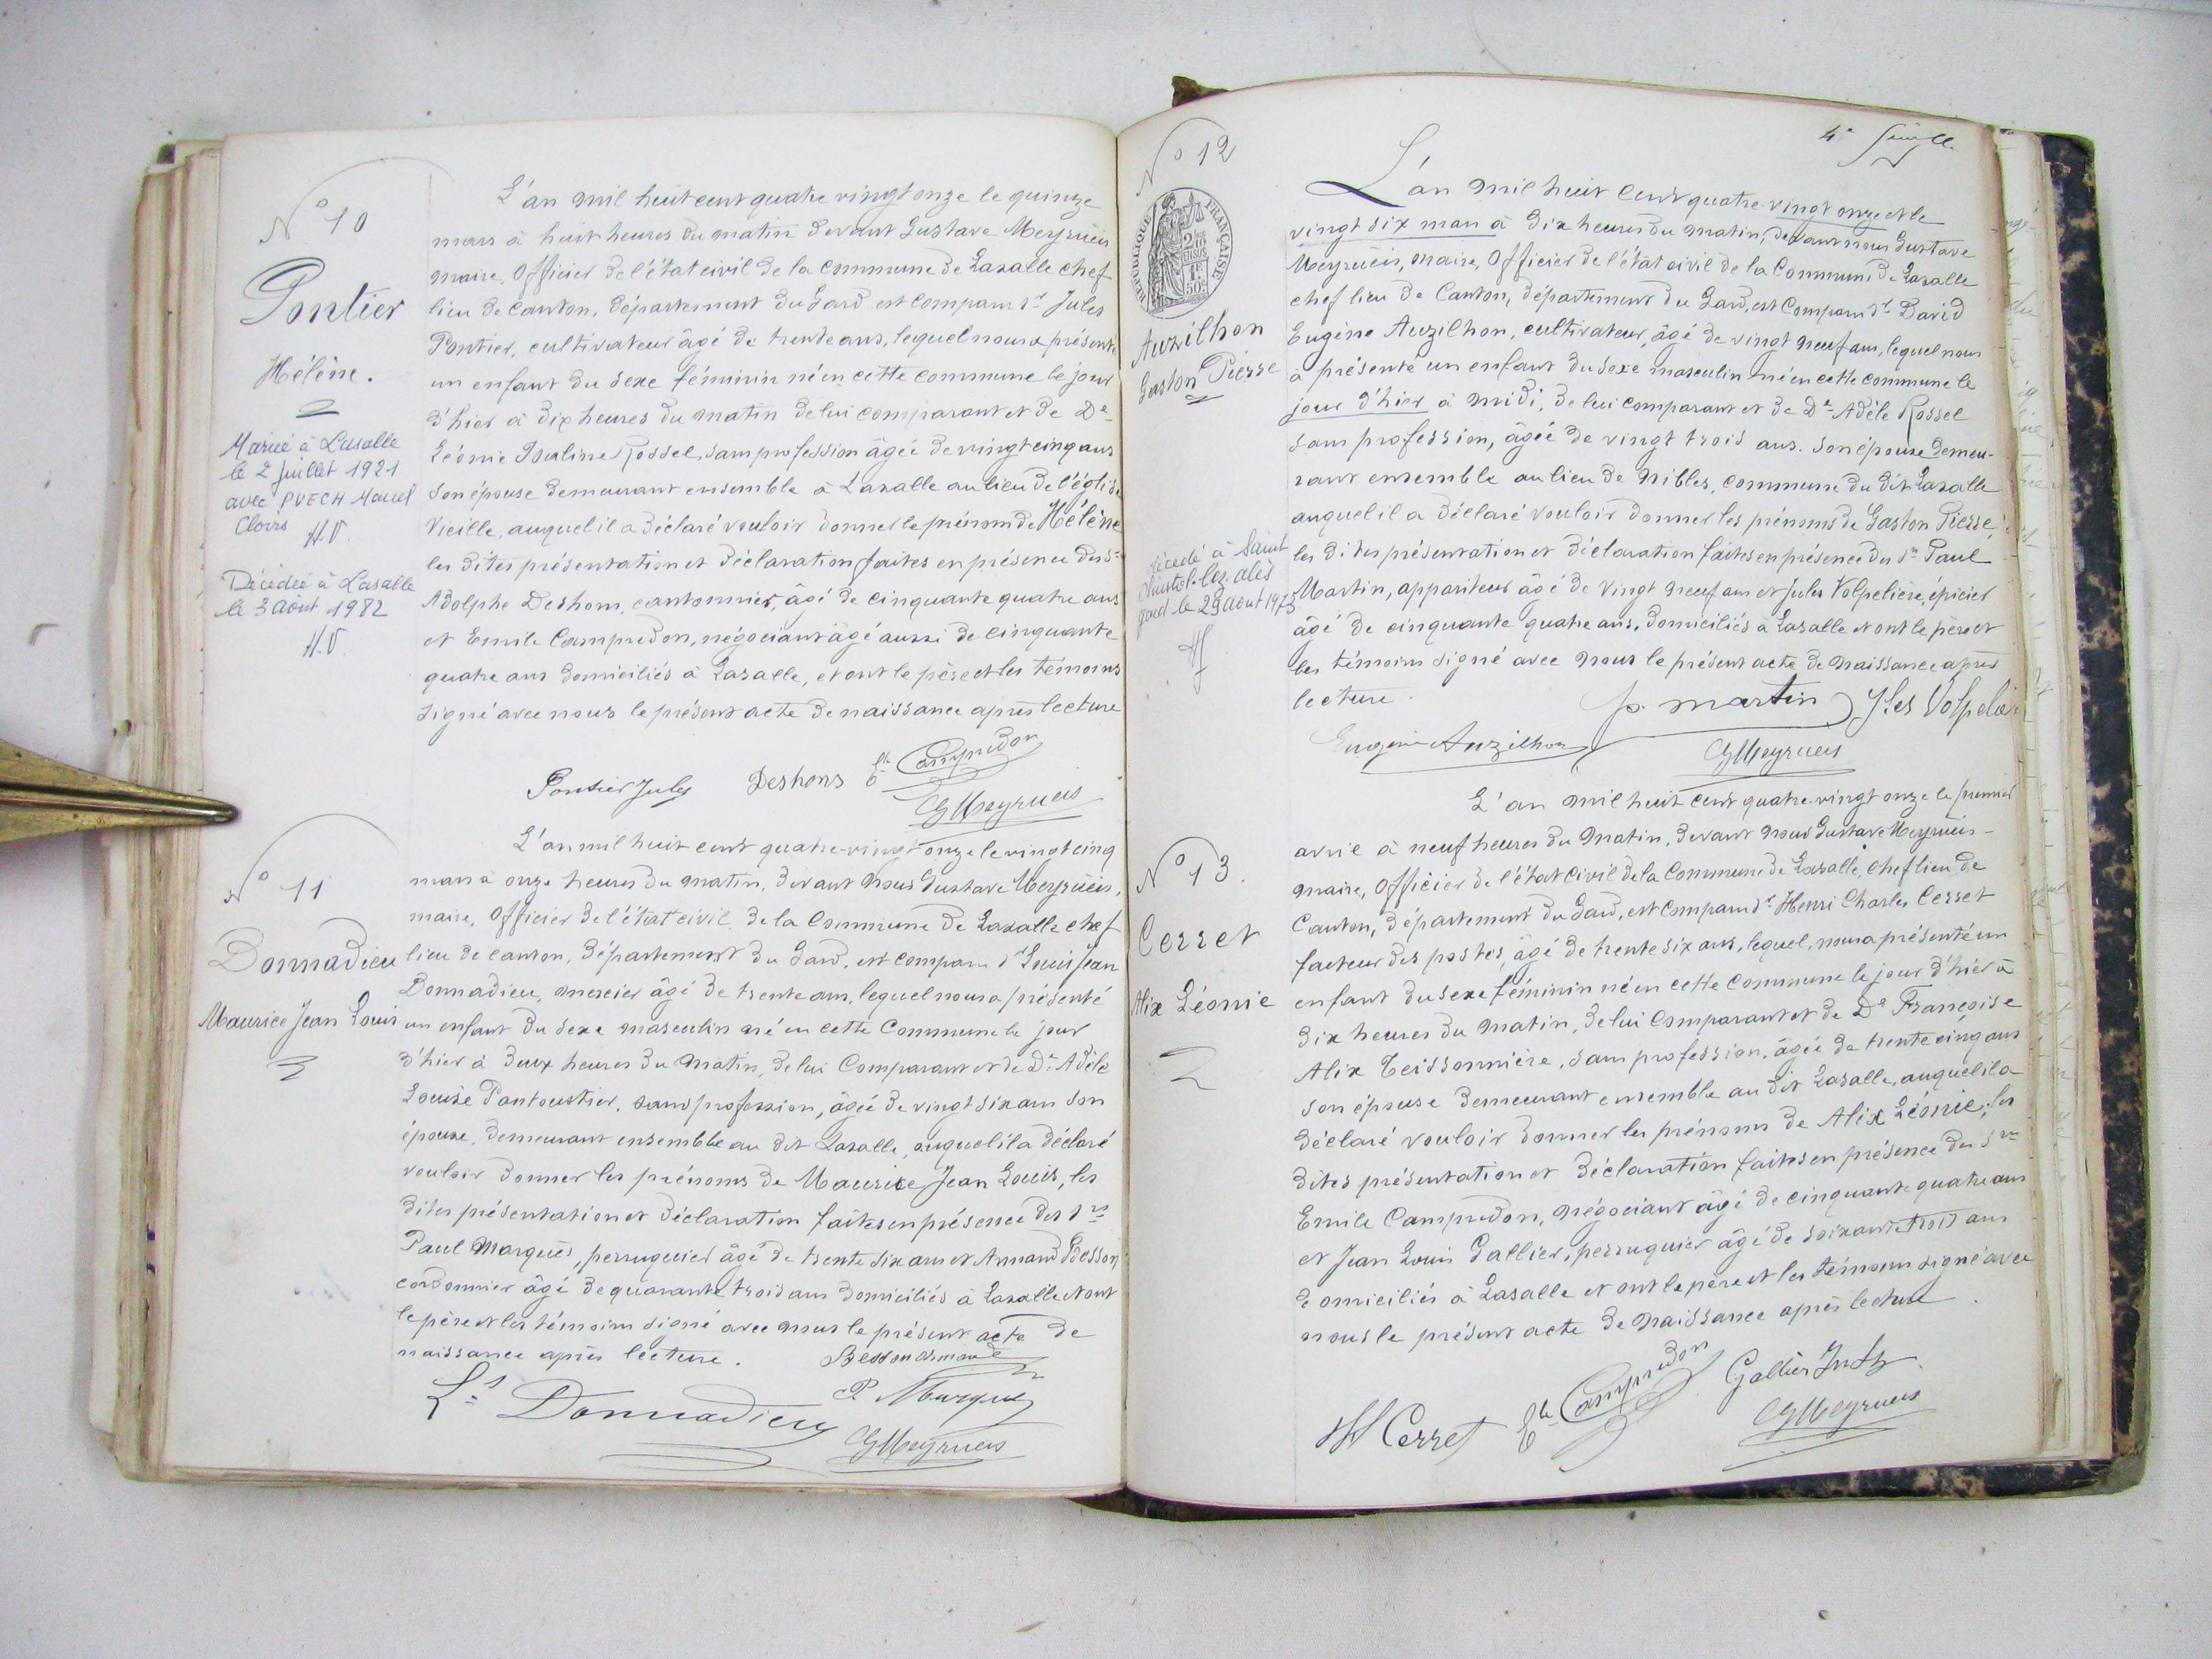 N° 10
Pontier
Hélène.
Mariée à Lasalle
le 2 juillet 1921
avec PUECH Marcel
Clovis H.V.
Décédée à Lasalle
le 3 août 1982
H.V.
L'an mil huit cent quatre vingt onze le quinze
mars à huit heures du matin devant Gustave Meyrueis
maire, Officier de l'état civil de la commune de Lasalle chef
lieu de canton, département du Gard, est comparu sr Jules
Pontier, cultivateur âgé de trente ans, lequel nous a présenté
un enfant du sexe féminin né en cette commune le jour
d'hier à dix heures du matin de lui comparant et de De
Léonie Pauline Rossel, sans profession âgée de vingt cinq ans
son épouse demeurant ensemble à Lasalle au lieu de l'église
Vieille, auquel il a déclaré vouloir donner le prénom de Hélène
les dites présentation et déclaration faites en présence des srs
Adolphe Deshons, cantonnier, âgé de cinquante quatre ans
et Emile Campredon, négociant âgé aussi de cinquante
quatre ans domiciliés à Lasalle, et ont le père et les témoins
signé avec nous le présent acte de naissance après lecture
Pontier Jules Deshons Ele Campredon
G Meyrueis
N° 11
Donnadieu
Maurice Jean Louis
L'an mil huit cent quatre-vingt onze le vingt cinq
mars à onze heures du matin, devant nous Gustave Meyrueis,
maire, Officier de l'état civil de la Commune de Lasalle chef
lieu de canton, département du Gard, est comparu sr Louis Jean
Donnadieu, mercier âgé de trente ans, lequel nous a présenté
un enfant du sexe masculin né en cette Commune le jour
d'hier à deux heures du matin, de lui Comparant et de De Adèle
Louise Pantoustier, sans profession, âgée de vingt six ans son
épouse, demeurant ensemble au dit Lasalle, auquel il a déclaré
vouloir donner les prénoms de Maurice Jean Louis, les
dites présentation et déclaration faites en présence des srs
Paul Marquès, perruquier âgé de trente six ans et Armand Besson
cordonnier âgé de quarante trois ans domiciliés à Lasalle et ont
le père et les témoins signé avec nous le présent acte de
naissance après lecture. Besson Armand
Ls Donnadieu P Marques
G Meyrueis
4e feuille
N° 12
RÉPUBLIQUE FRANÇAISE
2/10 EN SUS
1f 50c
Auzilhon
Gaston Pierre
Décédé à Saint
Christol-lez-alès
gard le 23 aout 1975
L'an mil huit cent quatre-vingt onze et le
vingt six mars à dix heures du matin, devant nous Gustave
Meyrueis, maire, Officier de l'état civil de la Commune de Lasalle
chef lieu de Canton, département du Gard, est comparu sr David
Eugène Auzilhon, cultivateur, âgé de vingt neuf ans, lequel nous
a présenté un enfant du sexe masculin né en cette commune le
jour d'hier à midi, de lui comparant et de De Adèle Rossel
sans profession, âgée de vingt trois ans. son épouse demeu-
rant ensemble au lieu de Nibles, commune du dit Lasalle
auquel il a déclaré vouloir donner les prénoms de Gaston Pierre,
les dites présentation et déclaration faites en présence des srs Paul
Martin, appariteur âgé de vingt neuf ans et Jules Volpelière, épicier
âgé de cinquante quatre ans, domiciliés à Lasalle et ont le père et
les témoins signé avec nous le présent acte de naissance après
lecture.
p. martin Jles Volpeliè
Eugène Auzilhon G Meyrueis
N° 13.
Cerret
Alix Léonie
L'an mil huit cent quatre-vingt onze le premier
avril à neuf heures du matin, devant nous Gustave Meyrueis
maire, Officier de l'état civil de la Commune de Lasalle, chef lieu de
Canton, département du Gard, est comparu sr Henri Charles Cerret
facteur des postes, âgé de trente six ans, lequel, nous a présenté un
enfant du sexe féminin né en cette commune le jour d'hier à
dix heures du matin, de lui comparant et de De Françoise
Alix Teissonnière, sans profession, âgée de trente cinq ans
son épouse demeurant ensemble au dit Lasalle, auquel il a
déclaré vouloir donner les prénoms de Alix Léonie, les
dites présentation et déclaration faites en présence des srs
Emile Campredon, négociant âgé de cinquante quatre ans
et Jean Louis Gallier, perruquier âgé de soixante trois ans
domiciliés à Lasalle et ont le père et les témoins signé avec
nous le présent acte de naissance après lecture.
H Cerret Ele Campredon Gallier
G Meyrueis